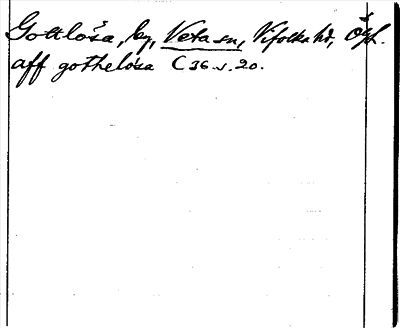 Gottlösa, by, Veta sn, Vifolka hd, Ögl.
aff gothelösa C 36 s. 20.